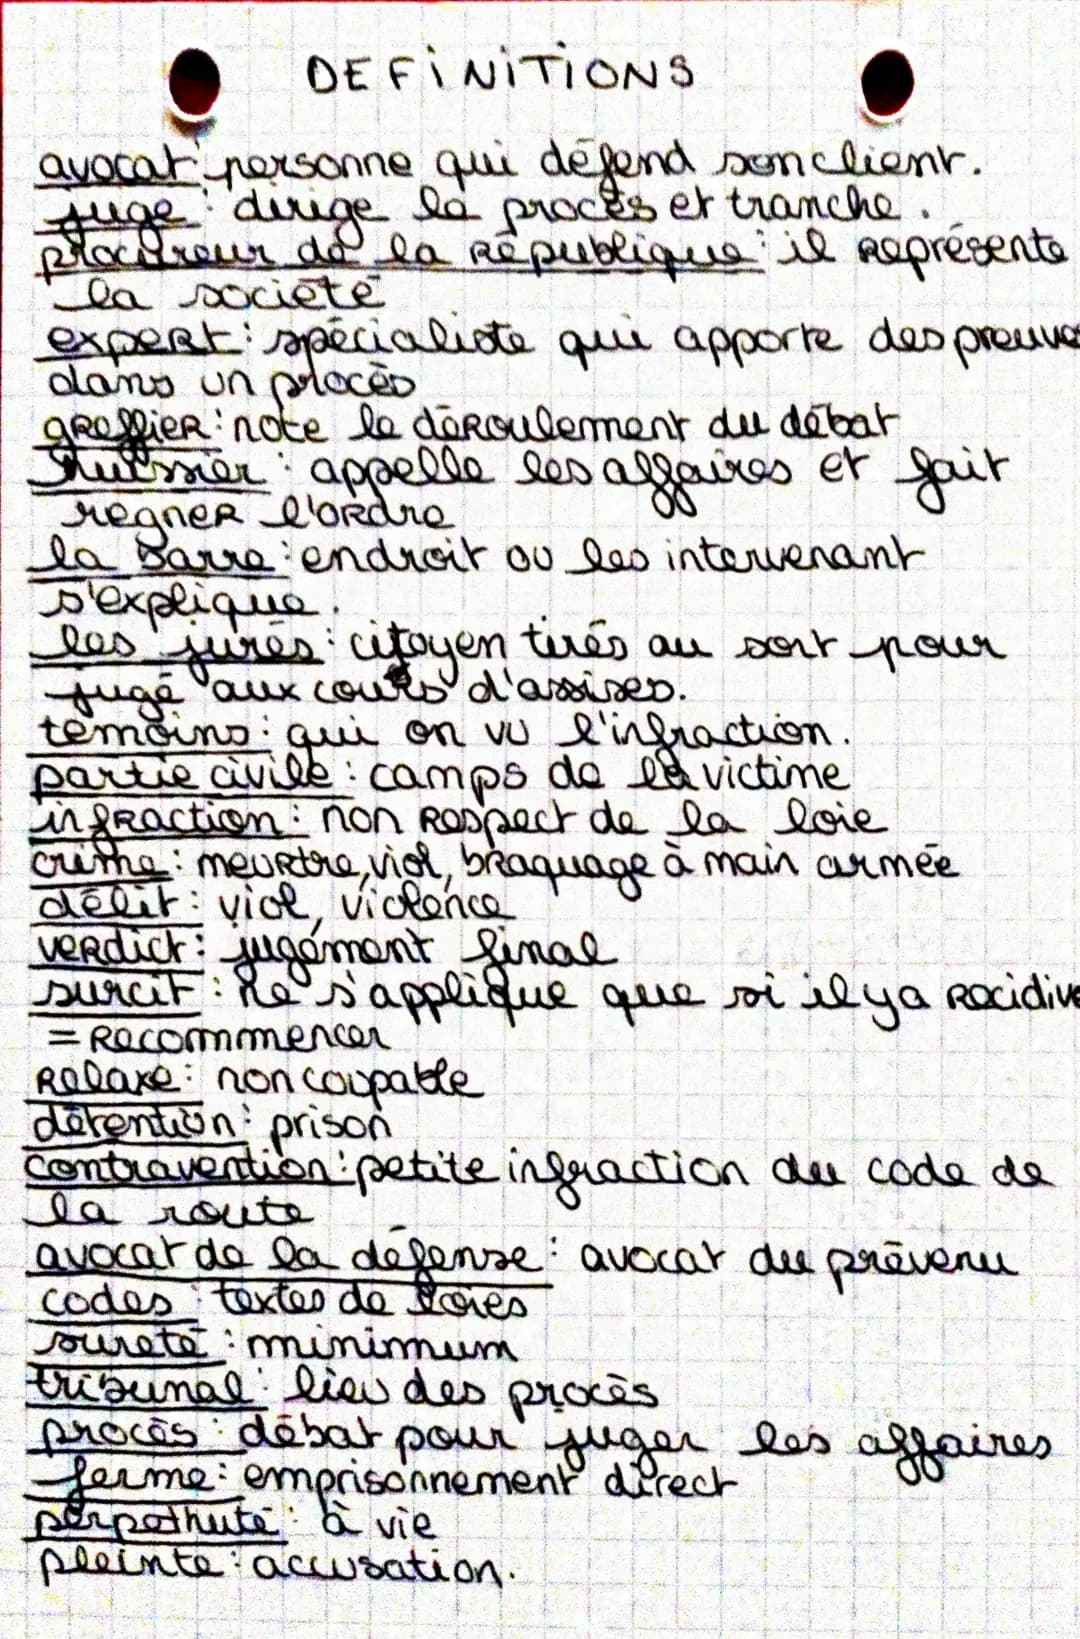 DEFINITIONS
avocat : personne qui défend son client.
juge : dirige le procès et tranche.
procureur de la République : il représente
la société
expert : spécialiste qui apporte des preuves
dans un procès
greffier : note le déroulement du débat
huissier : appelle les affaires et fait
regner l'ordre
la barre : endroit ou les intervenant
s'explique.
les jurés : citoyen tirés au sort pour
jugé aux cours d'assises.
témoins : qui on vu l'infraction.
partie civile : camps de la victime
infraction : non respect de la loie
crime : meurtre, viol, braquage à main armée
délit : viol, violence
verdict : jugément final
surcit : ne s'applique que si il y a recidive
= recommencer
relaxe : non coupable
détention : prison
contravention : petite infraction du code de
la route
avocat de la défense : avocat du prévenu
codes : textes de loies
sureté : minimum
tribunal : lieu des procès
procès : débat pour juger les affaires
ferme : emprisonnement direct
perpethuté : à vie
pleinte : accusation.